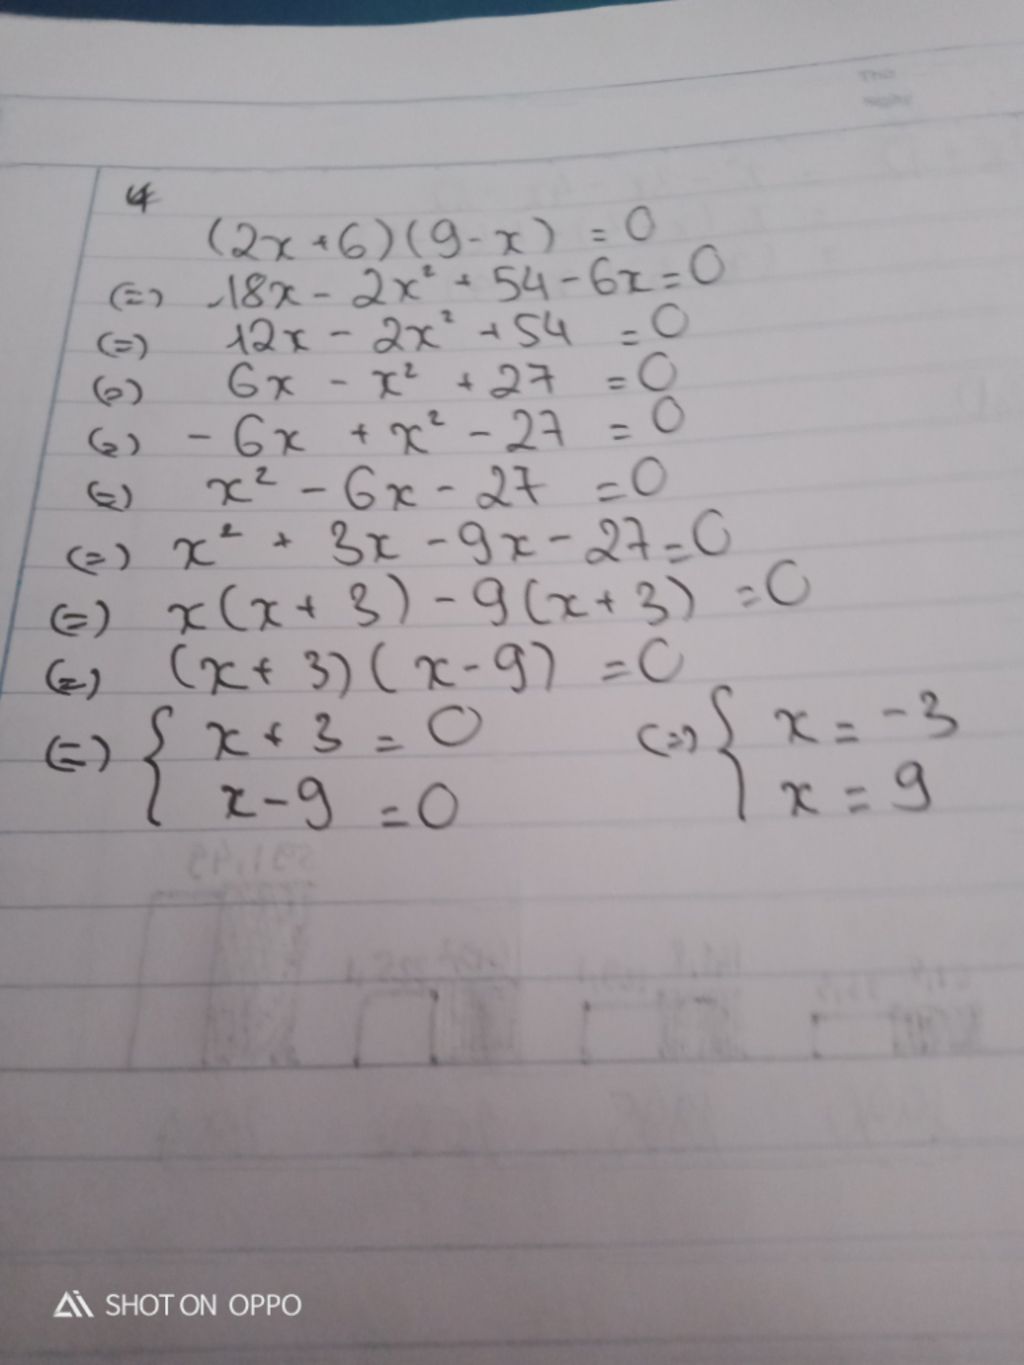 4
(2x+6)(9-x) = 0
(=) 18x - 2x² + 54 - 6x = 0
(=) 12x - 2x² + 54 = 0
(=) 6x - x² + 27 = 0
(=) - 6x + x² - 27 = 0
(=) x² - 6x - 27 = 0
(=) x² + 3x - 9x - 27 = 0
(=) x(x+3) - 9(x+3) = 0
(=) (x+3)(x-9) = 0
(=) { x+3 = 0 (=) { x = -3
x-9 = 0 x = 9
SHOT ON OPPO